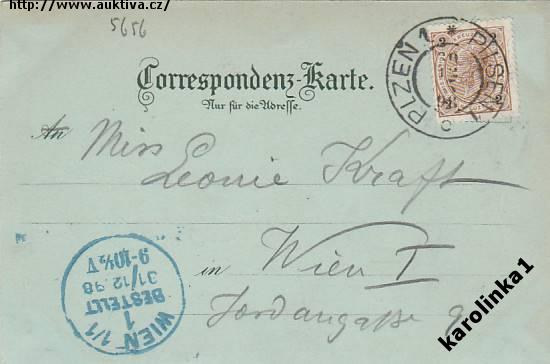 https://www.auktiva.cz/
5656
Correspondenz-Karte.
Nur für die Adresse.
PLZEN 1 * PILSEN 1
An Miss
Leonie Kraft
in Wien I
Jordangasse 9
WIEN 1/1
1
BESTELLT
31/12.98
9-10½ V
karolinka1